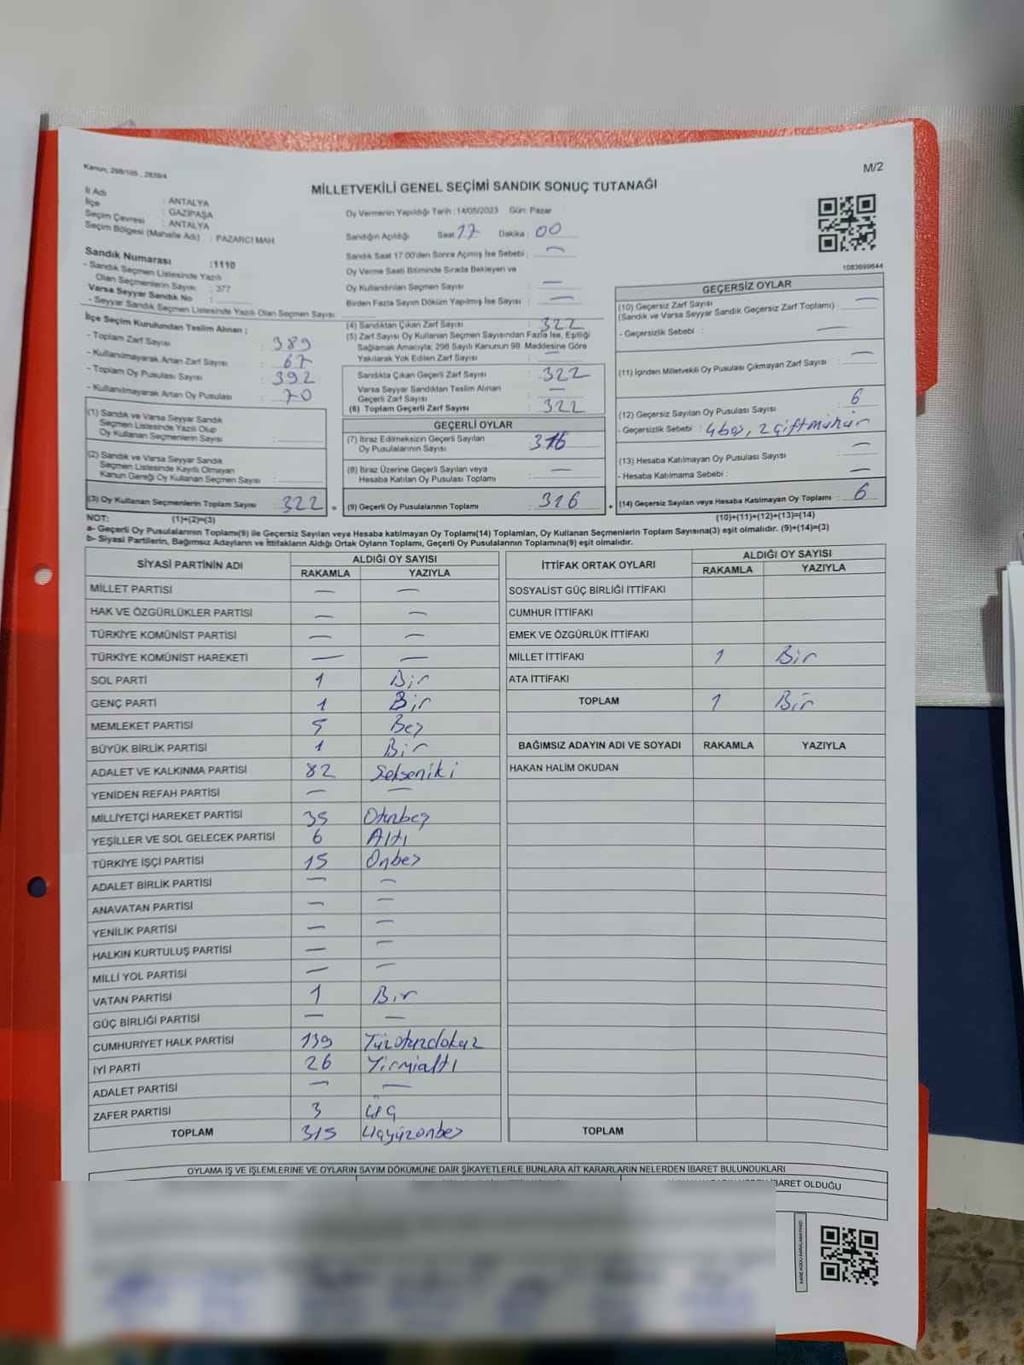 Kanun, 298/105 , 2839/4
M/2
MİLLETVEKİLİ GENEL SEÇİMİ SANDIK SONUÇ TUTANAĞI
İl Adı : ANTALYA
İlçe : GAZİPAŞA
Seçim Çevresi : ANTALYA
Seçim Bölgesi (Mahalle Adı) : PAZARCI MAH
Sandık Numarası :1110
- Sandık Seçmen Listesinde Yazılı
Olan Seçmenlerin Sayısı : 377
Varsa Seyyar Sandık No :
- Seyyar Sandık Seçmen Listesinde Yazılı Olan Seçmen Sayısı :
Oy Vermenin Yapıldığı Tarih :14/05/2023 Gün: Pazar
Sandığın Açıldığı Saat 17 Dakika : 00
Sandık Saat 17:00'den Sonra Açılmış İse Sebebi : —
Oy Verme Saati Bitiminde Sırada Bekleyen ve
Oy Kullandırılan Seçmen Sayısı : —
Birden Fazla Sayım Döküm Yapılmış İse Sayısı : —
1083699644
İlçe Seçim Kurulundan Teslim Alınan ;
- Toplam Zarf Sayısı : 389
- Kullanılmayarak Artan Zarf Sayısı : 67
- Toplam Oy Pusulası Sayısı : 392
- Kullanılmayarak Artan Oy Pusulası : 70
(1) Sandık ve Varsa Seyyar Sandık
Seçmen Listesinde Yazılı Olup
Oy Kullanan Seçmenlerin Sayısı :
(2) Sandık ve Varsa Seyyar Sandık
Seçmen Listesinde Kayıtlı Olmayan
Kanun Gereği Oy Kullanan Seçmen Sayısı :
(3) Oy Kullanan Seçmenlerin Toplam Sayısı : 322
(1)+(2)=(3)
(4) Sandıktan Çıkan Zarf Sayısı : 322
(5) Zarf Sayısı Oy Kullanan Seçmen Sayısından Fazla İse, Eşitliği
Sağlamak Amacıyla; 298 Sayılı Kanunun 98. Maddesine Göre
Yakılarak Yok Edilen Zarf Sayısı : —
Sandıkta Çıkan Geçerli Zarf Sayısı : 322
Varsa Seyyar Sandıktan Teslim Alınan
Geçerli Zarf Sayısı : —
(6) Toplam Geçerli Zarf Sayısı : 322
GEÇERLİ OYLAR
(7) İtiraz Edilmeksizin Geçerli Sayılan
Oy Pusulalarının Sayısı : 316
(8) İtiraz Üzerine Geçerli Sayılan veya
Hesaba Katılan Oy Pusulası Toplamı : —
(9) Geçerli Oy Pusulalarının Toplamı : 316
GEÇERSİZ OYLAR
(10) Geçersiz Zarf Sayısı : —
(Sandık ve Varsa Seyyar Sandık Geçersiz Zarf Toplamı)
- Geçersizlik Sebebi : —
(11) İçinden Milletvekili Oy Pusulası Çıkmayan Zarf Sayısı : —
(12) Geçersiz Sayılan Oy Pusulası Sayısı : 6
- Geçersizlik Sebebi : 4 boş, 2 çift mühür
(13) Hesaba Katılmayan Oy Pusulası Sayısı : —
- Hesaba Katılmama Sebebi : —
(14) Geçersiz Sayılan veya Hesaba Katılmayan Oy Toplamı : 6
(10)+(11)+(12)+(13)=(14)
NOT:
a- Geçerli Oy Pusulalarının Toplamı(9) ile Geçersiz Sayılan veya Hesaba Katılmayan Oy Toplamı(14) Toplamları, Oy Kullanan Seçmenlerin Toplam Sayısına(3) eşit olmalıdır. (9)+(14)=(3)
b- Siyasi Partilerin, Bağımsız Adayların ve İttifakların Aldığı Ortak Oyların Toplamı, Geçerli Oy Pusulalarının Toplamına(9) eşit olmalıdır.
SİYASİ PARTİNİN ADI ALDIĞI OY SAYISI
RAKAMLA YAZIYLA
MİLLET PARTİSİ — —
HAK VE ÖZGÜRLÜKLER PARTİSİ — —
TÜRKİYE KOMÜNİST PARTİSİ — —
TÜRKİYE KOMÜNİST HAREKETİ — —
SOL PARTİ 1 Bir
GENÇ PARTİ 1 Bir
MEMLEKET PARTİSİ 5 Beş
BÜYÜK BİRLİK PARTİSİ 1 Bir
ADALET VE KALKINMA PARTİSİ 82 Sekseniki
YENİDEN REFAH PARTİSİ — —
MİLLİYETÇİ HAREKET PARTİSİ 35 Otuzbeş
YEŞİLLER VE SOL GELECEK PARTİSİ 6 Altı
TÜRKİYE İŞÇİ PARTİSİ 15 Onbeş
ADALET BİRLİK PARTİSİ — —
ANAVATAN PARTİSİ — —
YENİLİK PARTİSİ — —
HALKIN KURTULUŞ PARTİSİ — —
MİLLİ YOL PARTİSİ — —
VATAN PARTİSİ 1 Bir
GÜÇ BİRLİĞİ PARTİSİ — —
CUMHURİYET HALK PARTİSİ 139 Yüzotuzdokuz
İYİ PARTİ 26 Yirmialtı
ADALET PARTİSİ — —
ZAFER PARTİSİ 3 Üç
TOPLAM 315 Üçyüzonbeş
İTTİFAK ORTAK OYLARI ALDIĞI OY SAYISI
RAKAMLA YAZIYLA
SOSYALİST GÜÇ BİRLİĞİ İTTİFAKI
CUMHUR İTTİFAKI
EMEK VE ÖZGÜRLÜK İTTİFAKI
MİLLET İTTİFAKI 1 Bir
ATA İTTİFAKI
TOPLAM 1 Bir
BAĞIMSIZ ADAYIN ADI VE SOYADI RAKAMLA YAZIYLA
HAKAN HALİM OKUDAN
TOPLAM
OYLAMA İŞ VE İŞLEMLERİNE VE OYLARIN SAYIM DÖKÜMÜNE DAİR ŞİKAYETLERLE BUNLARA AİT KARARLARIN NELERDEN İBARET BULUNDUKLARI
İBARET OLDUĞU